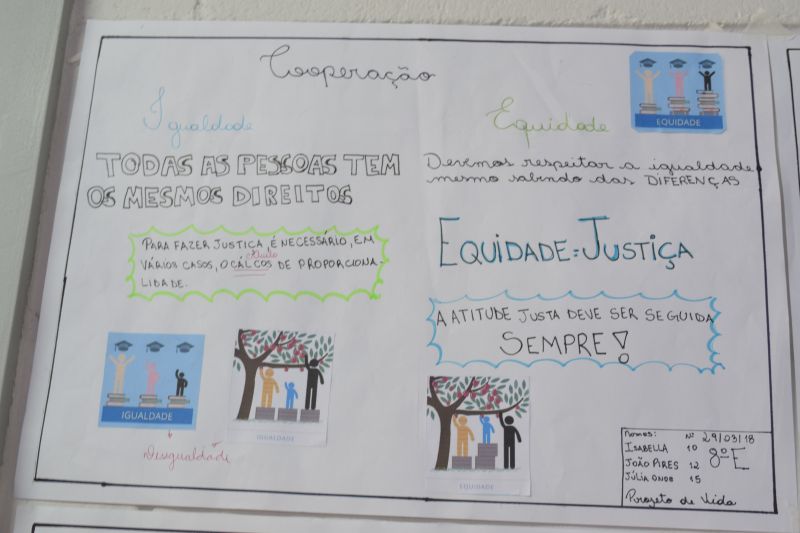 Cooperação
Igualdade
TODAS AS PESSOAS TEM
OS MESMOS DIREITOS
PARA FAZER JUSTIÇA, É NECESSÁRIO, EM
VÁRIOS CASOS, O CÁLCOS DE PROPORCIONA-
LIDADE.
IGUALDADE
Desigualdade
IGUALDADE
Equidade
EQUIDADE
Devemos respeitar a igualdade
mesmo sabindo das DIFERENÇAS
EQUIDADE=JUSTIÇA
A ATITUDE JUSTA DEVE SER SEGUIDA
SEMPRE!
EQUIDADE
Nomes: Nº 29/03/18
ISABELLA 10 8ºE
JOÃO PIRES 12
JÚLIA 15
Projeto de Vida